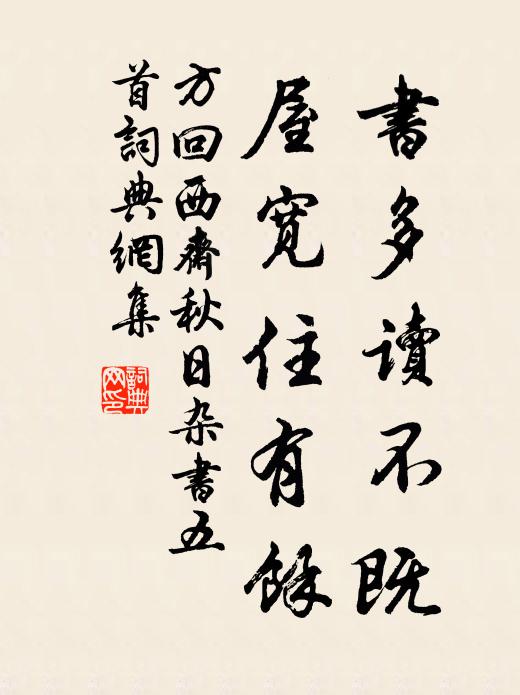 書多讀不既
屋寬住有餘
方回西齋秋日杂書五
首詞典網集
詞典
网印